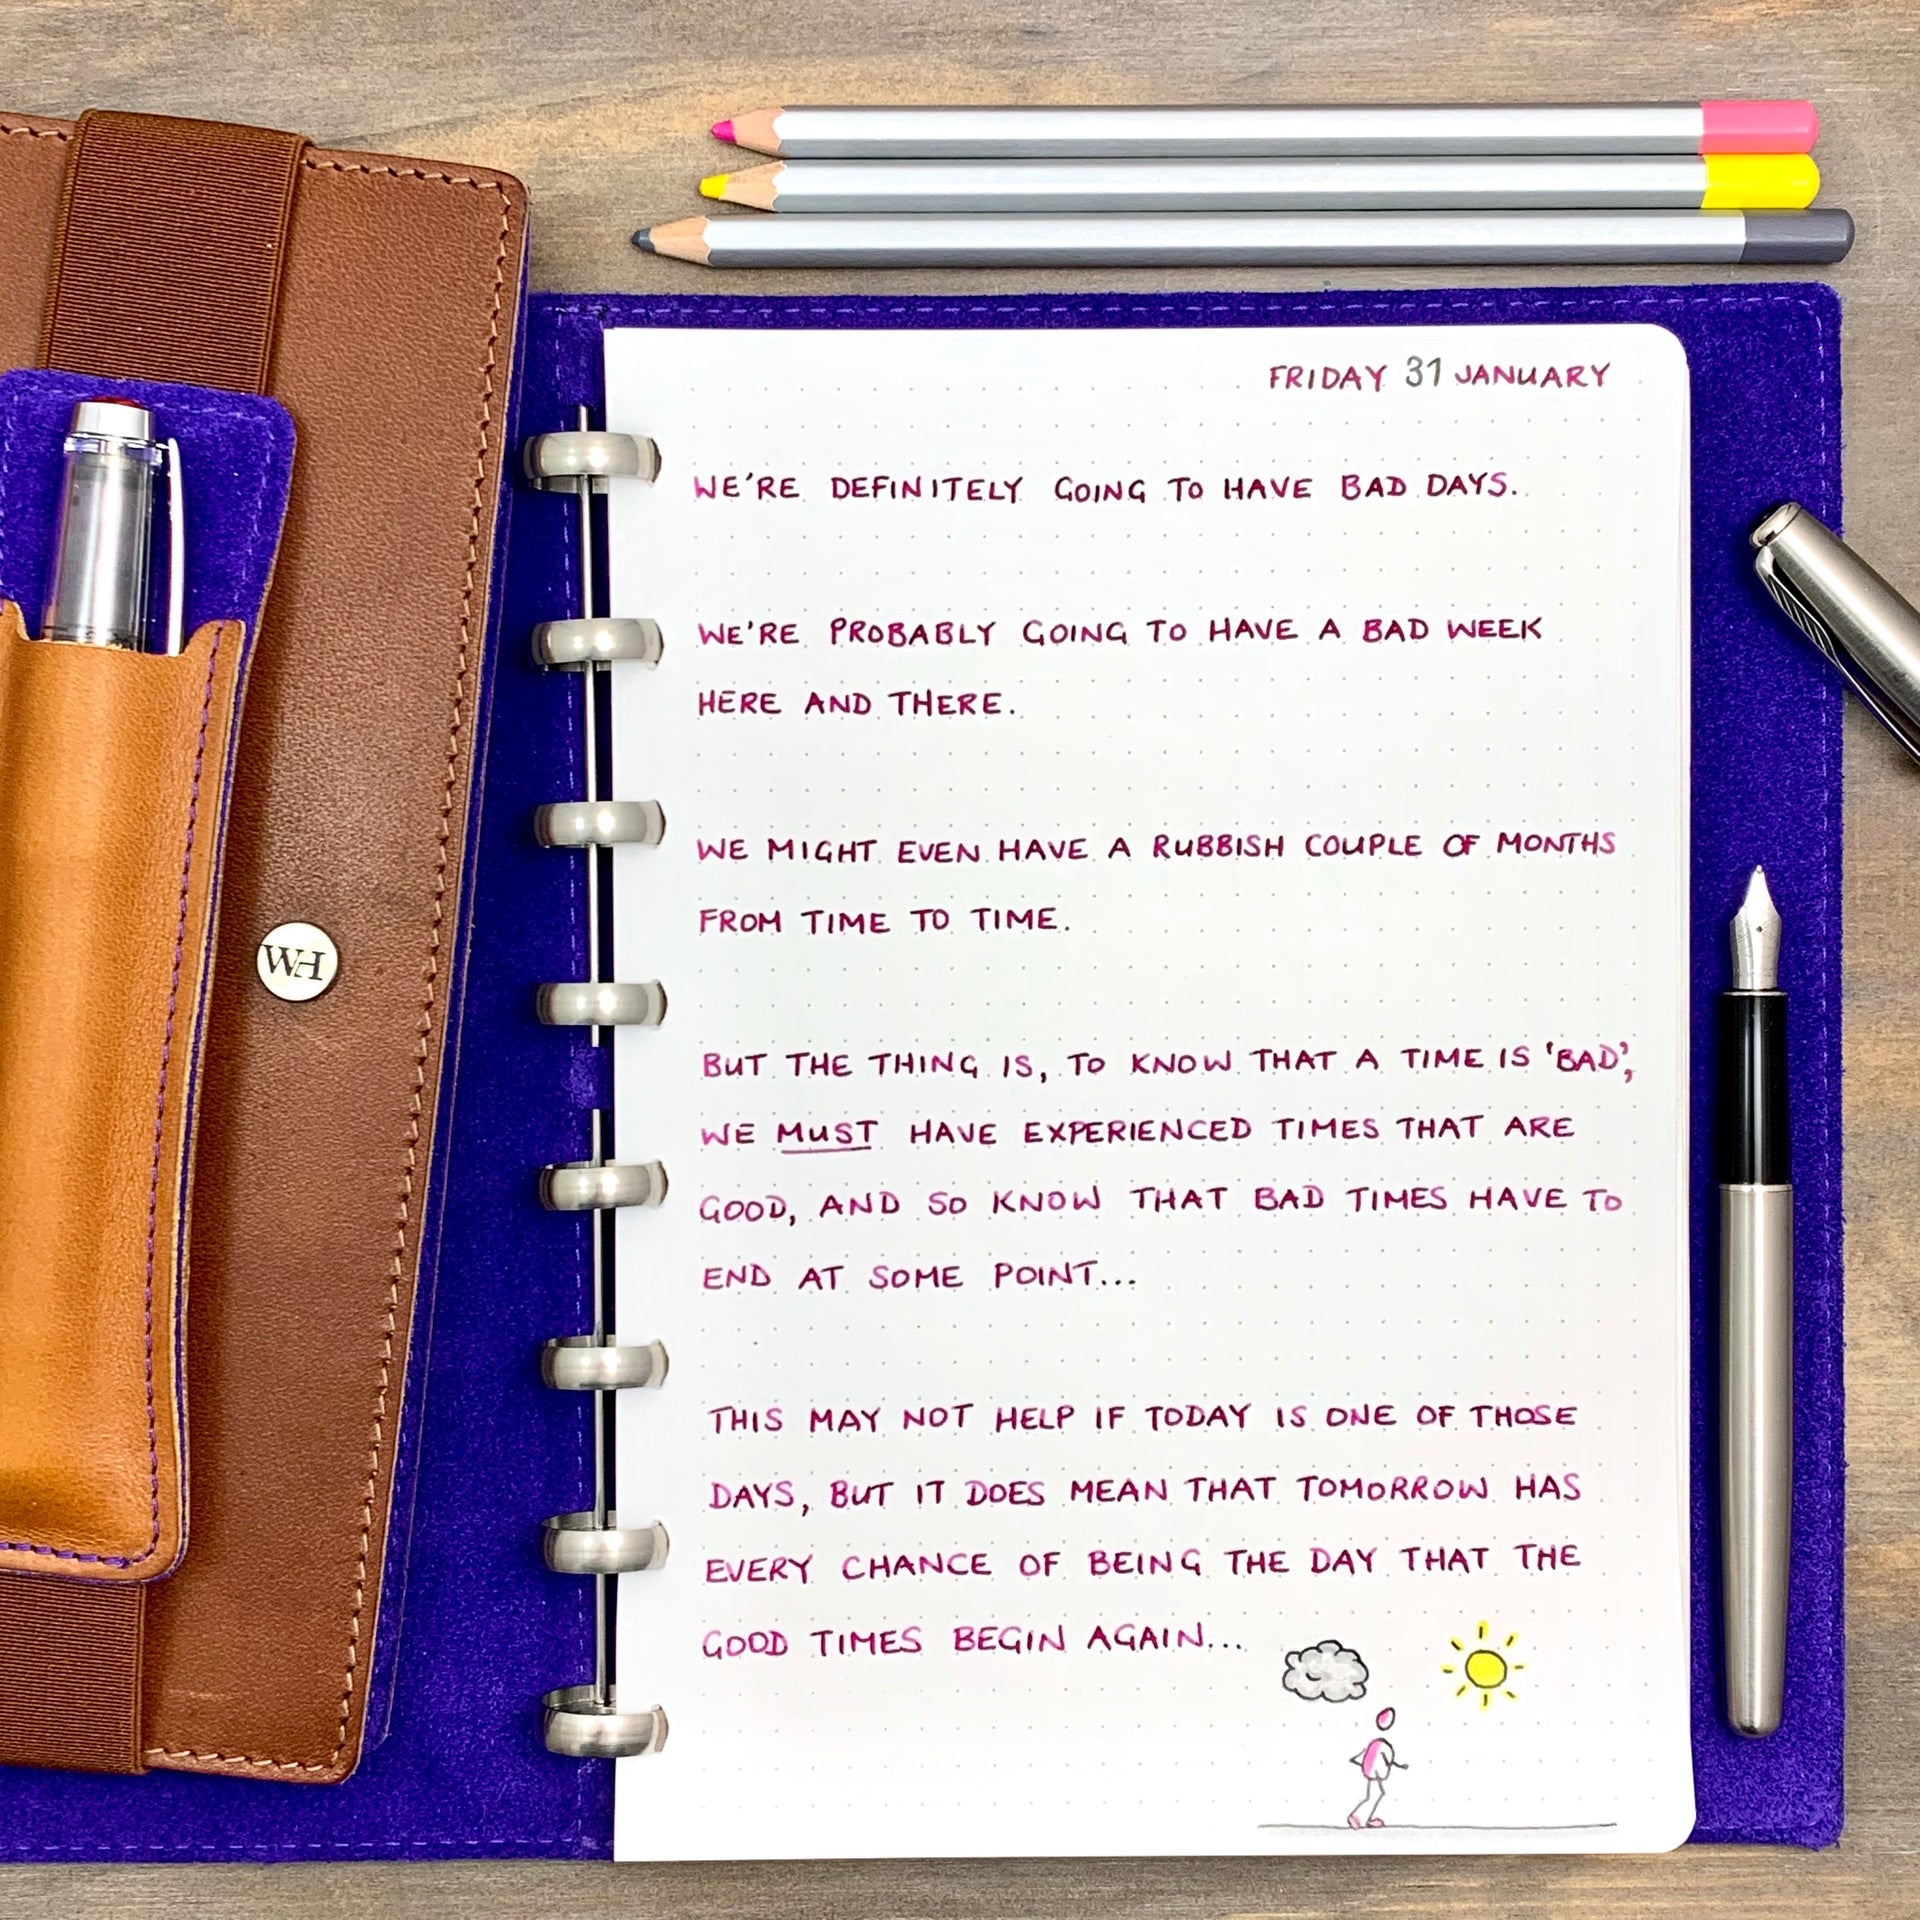 WH
FRIDAY 31 JANUARY
WE'RE DEFINITELY GOING TO HAVE BAD DAYS.
WE'RE PROBABLY GOING TO HAVE A BAD WEEK
HERE AND THERE.
WE MIGHT EVEN HAVE A RUBBISH COUPLE OF MONTHS
FROM TIME TO TIME.
BUT THE THING IS, TO KNOW THAT A TIME IS 'BAD',
WE MUST HAVE EXPERIENCED TIMES THAT ARE
GOOD, AND SO KNOW THAT BAD TIMES HAVE TO
END AT SOME POINT...
THIS MAY NOT HELP IF TODAY IS ONE OF THOSE
DAYS, BUT IT DOES MEAN THAT TOMORROW HAS
EVERY CHANCE OF BEING THE DAY THAT THE
GOOD TIMES BEGIN AGAIN...